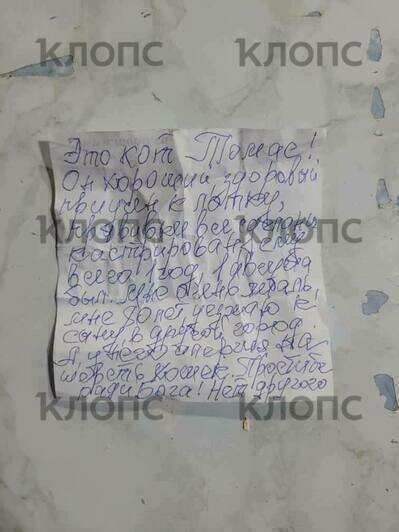 КЛОПС КЛОПС
Это кот Томас!
Он хороший здоровый
приучен к лотку,
прививки все сделаны
кастрирован, ему
всего 1 год, 1 августа
был. Мне очень жаль,
мне 70 лет, уезжаю к
сыну в другой город.
А у него аллергия на
шерсть кошек. Простите
ради Бога! Нет другого
КЛОПС КЛОПС
КЛОПС КЛОПС
КЛОПС КЛОПС